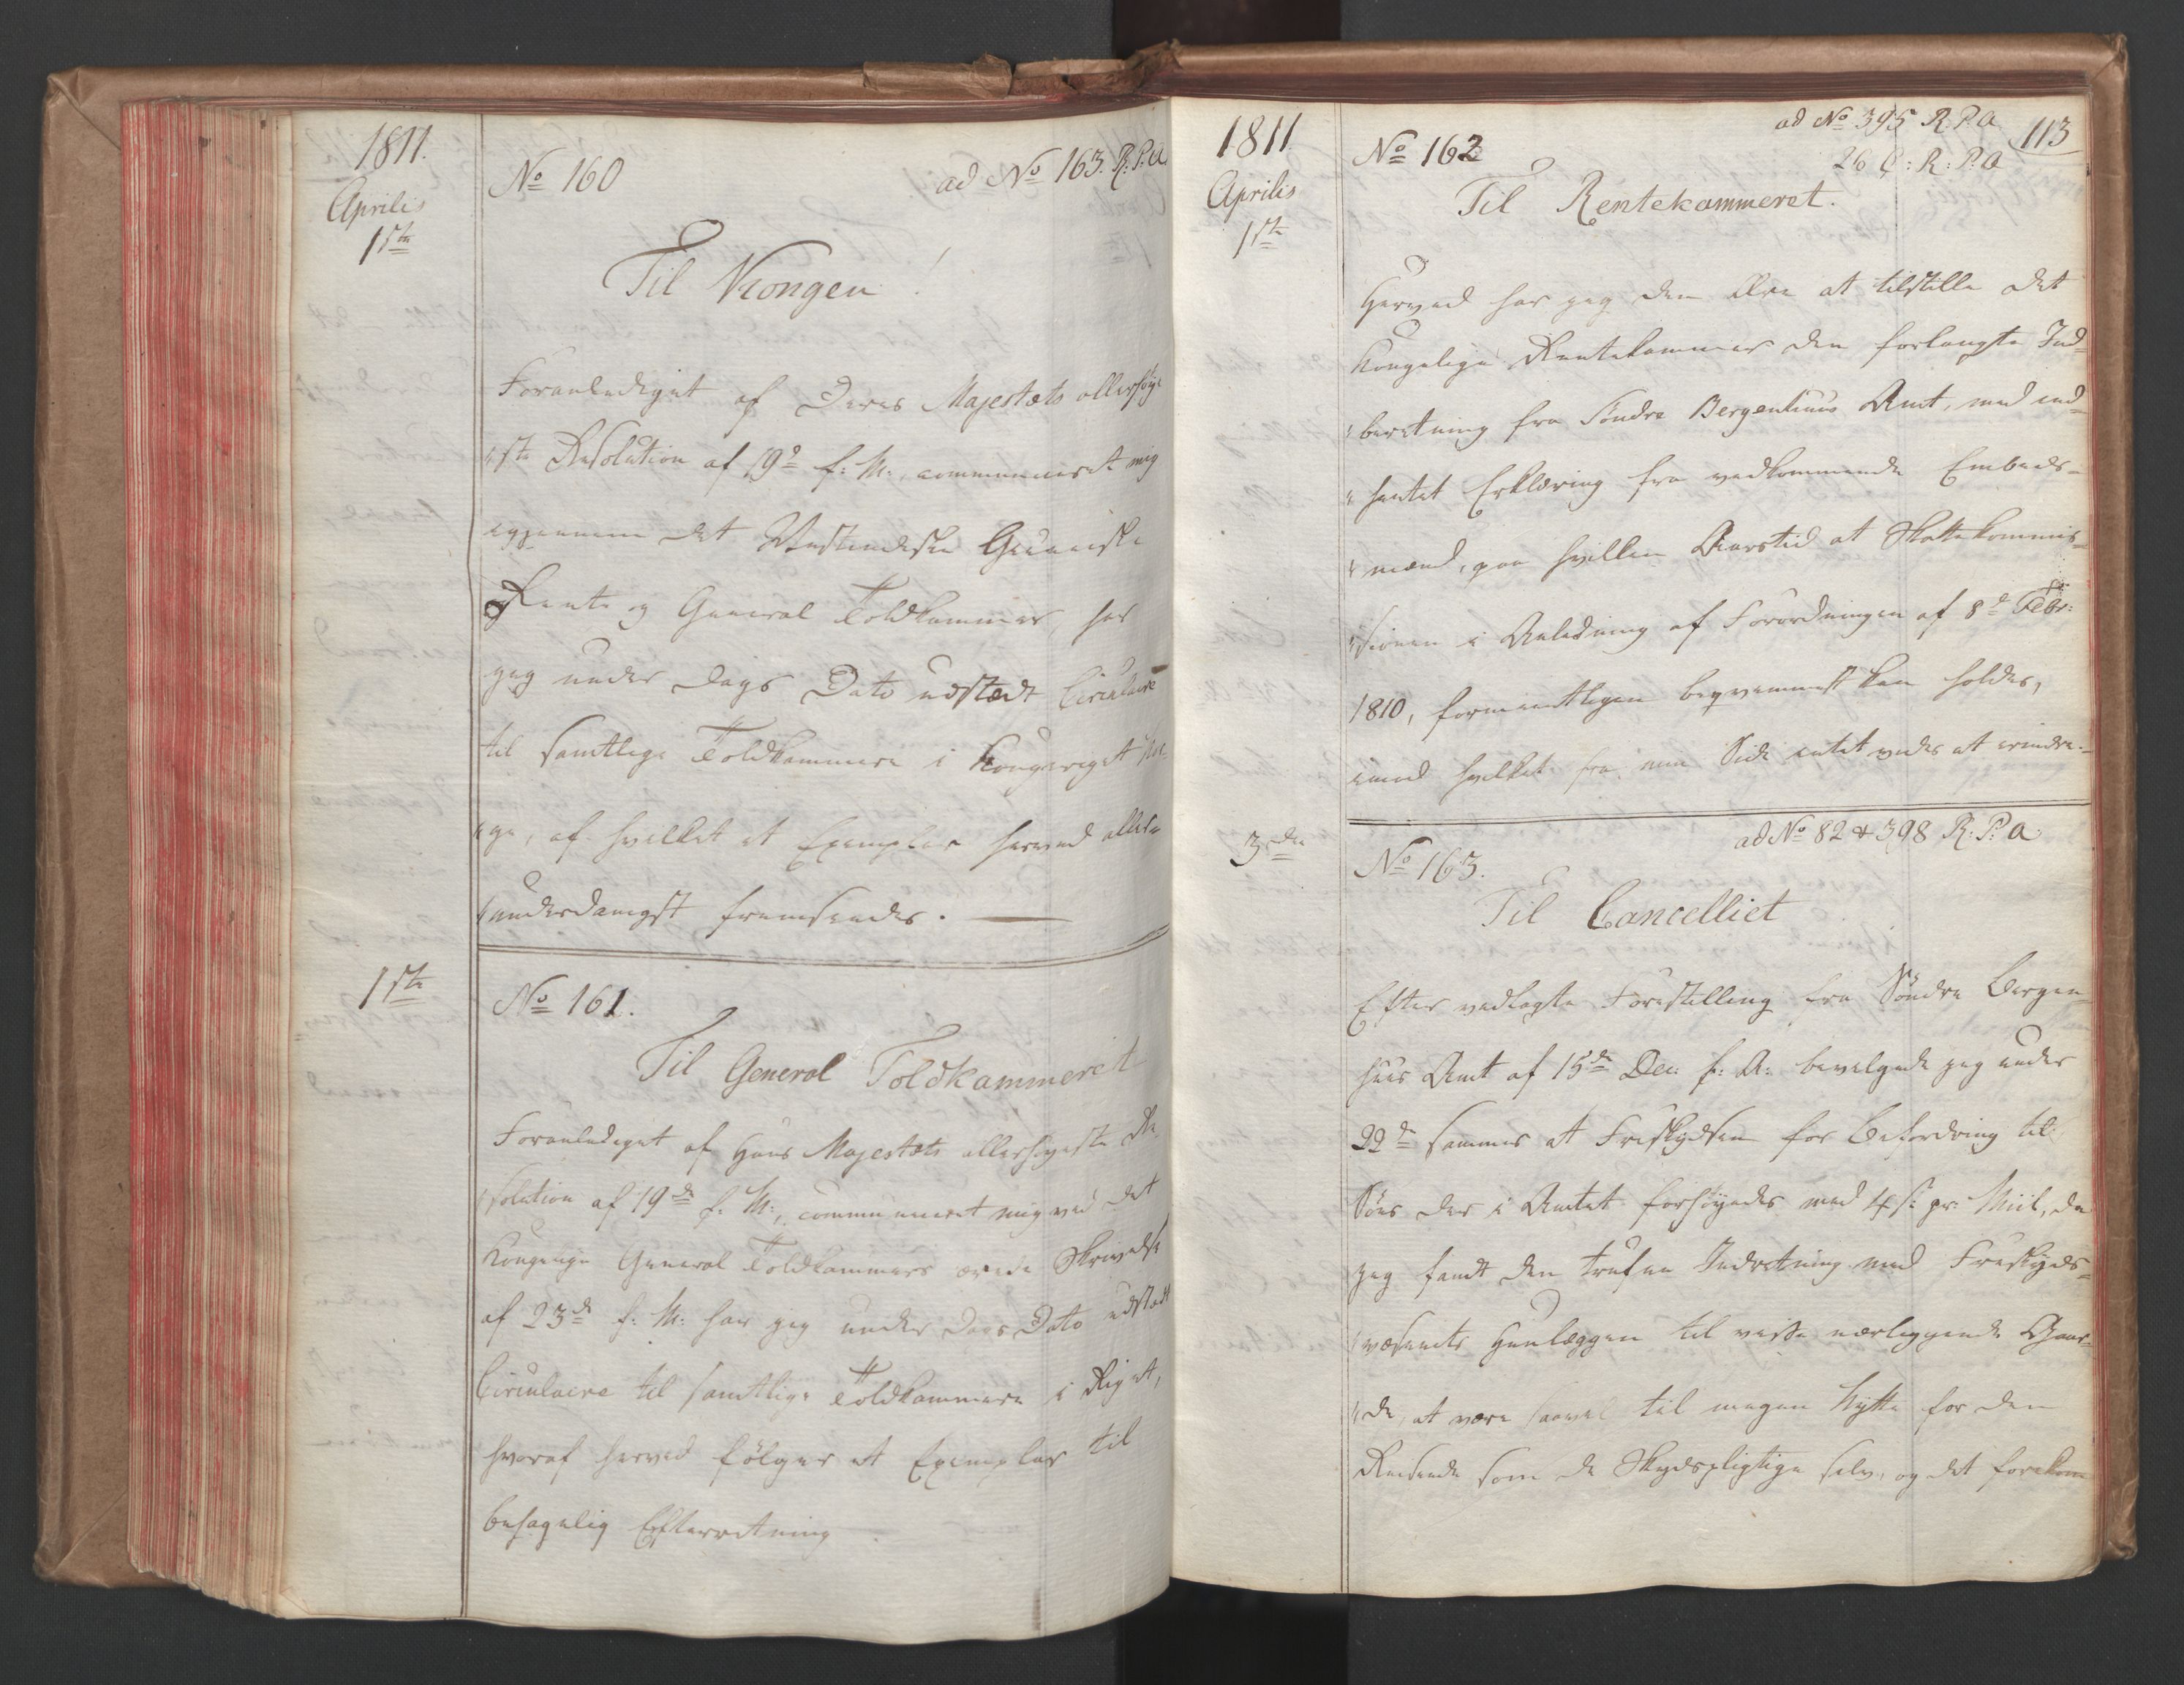 1811.
Aprilis
1ste
No 160
ad No 163. R: P: A
Til Kongen!
Foranlediget af Deres Majestæts allerhøye
"ste Resolution af 19de f: M:, communiceret mig
igjennem det Vestindiske Guineiske
Rente og General Toldkammer, har
jeg under Dags Dato udstædt Circulaire
til samtlige Toldkammere i Kongeriget Nor
"ge, af hvilket et Exemplar herved aller=
"underdanigst fremsendes.
1ste
No 161.
Til General Toldkammeret
Foranlediget af Hans Majestæts allerhøyeste Re
"solution af 19de f: M:, communiceret mig ved det
Kongelige General Toldkammers ærede Skrivelse
af 23de f: M: har jeg under Dags Dato udstædt
Circulaire til samtlige Toldkammere i Riget,
hvoraf herved følger et Exemplar til
behagelig Efterretning
1811
Aprilis
1ste
No 162
ad No 395 R: P: A
26 C: R: P: A
113
Til Rentekammeret.
Herved har jeg den Ære at tilstille det
Kongelige Rentekammer den forlangte Ind=
"beretning fra Søndre Bergenhuus Amt, med ind=
"hentet Erklæring fra vedkommende Embeds=
"mænd, paa hvilken Aarstid at Skattekommis=
"sionen i Anledning af Forordningen af 8de Febr:
1810, formeentligen beqvemmest kan holdes,
imod hvilket fra min Side intet vides at erindre.
3die
No 163.
ad No 82 & 398 R: P: A
Til Cancelliet
Efter vedlagte Forestilling fra Søndre Bergen
huus Amt af 15de Dec: f: A: bevilgede jeg under
22de sammes at Friskydsen for Befordring til
Søes der i Amtet forhøyedes med 4 s. pr: Miil, da
jeg fandt den trufne Indretning med Friskyds=
"væsenets Henlæggen til visse nærliggende Gaar=
"de, at være saavel til megen Nytte for den
Reisende som de Skydspligtige selv, og det forekom